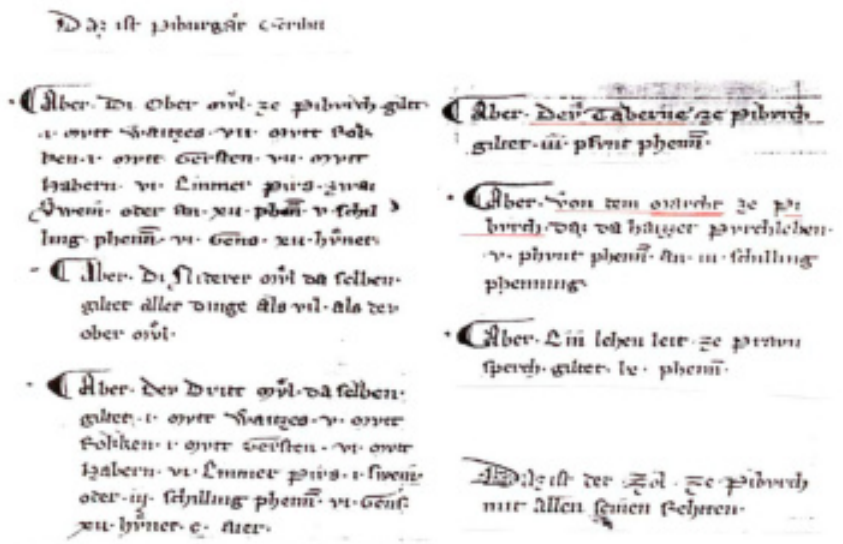 Daz ist piburgær
Aber. Di Ober mvl. ze pibvrch. giltet
.i. mvtt waitzes. vii. mvtt Rok
ken. i. mvtt Gersten. vii. mvtt
habern. vi. Emmer pirs. zwai
Swein. oder an. xii. phen. v. schil
ling. phenn. vi. Gens. xii. hvner.
Aber. Di Niderer mvl da selben.
giltet aller dinge als vil. als dev
ober mvl.
Aber. Der Dritt mvl. da selben.
giltet. i. mvtt waitzes. v. mvtt
Rokken. i. mvtt Gersten. vi. mvtt
habern. vi. Emmer pirs. i. swein.
oder. iij. schilling phenn. vi. Gens.
xii. hvner. c. aier.
Aber. Dev Taberne ze pibvrch
giltet. iii. pfvnt phenn.
Aber. von dem marcht ze pi
bvrch. daz da haizzet pvrchlehen.
.v. phvnt phenn. an. iii. schilling
phenning.
Aber. Liii lehen ze
sperch. giltet. lx. phenn.
Daz ist der Zol. ze pibvrch
mit allen seinen Rehten.